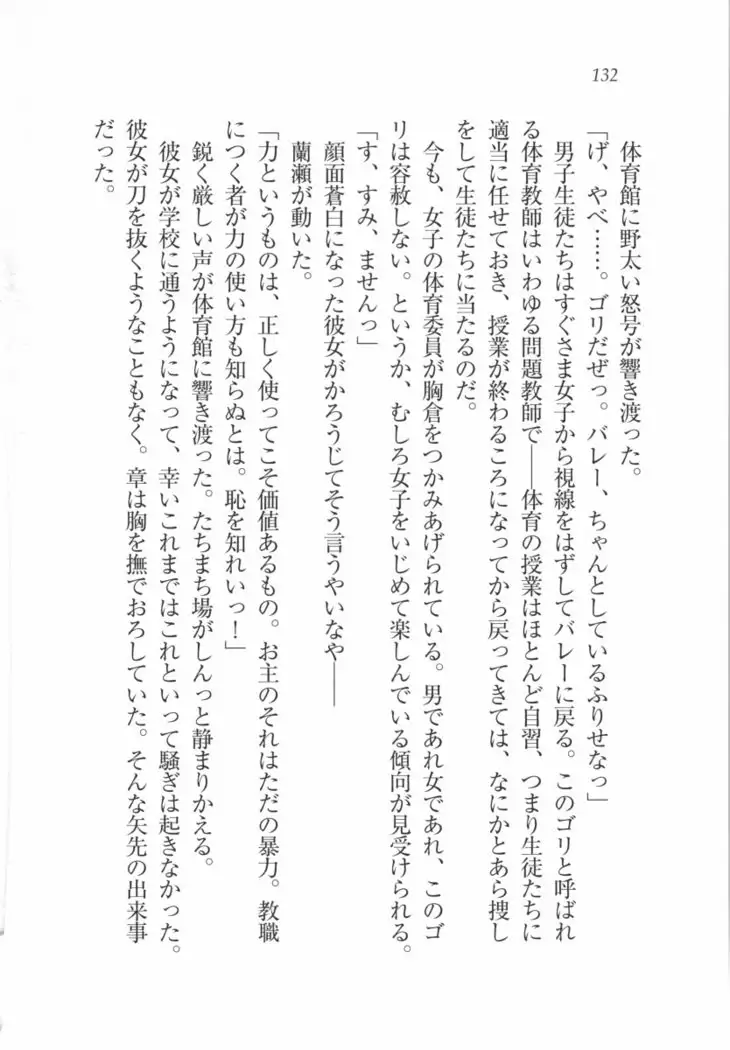 132
体育館に野太い怒号が響き渡った。
「げ、やべ……。ゴリだぜっ。バレー、ちゃんとしているふりせなっ」
男子生徒たちはすぐさま女子から視線をはずしてバレーに戻る。このゴリと呼ばれ
る体育教師はいわゆる問題教師で――体育の授業はほとんど自習、つまり生徒たちに
適当に任せておき、授業が終わるころになってから戻ってきては、なにかとあら捜し
をして生徒たちに当たるのだ。
今も、女子の体育委員が胸倉をつかみあげられている。男であれ女であれ、このゴ
リは容赦しない。というか、むしろ女子をいじめて楽しんでいる傾向が見受けられる。
「す、すみ、ませんっ」
顔面蒼白になった彼女がかろうじてそう言うやいなや――
蘭瀬が動いた。
「力というものは、正しく使ってこそ価値あるもの。お主のそれはただの暴力。教職
につく者が力の使い方も知らぬとは。恥を知れいっ！」
鋭く厳しい声が体育館に響き渡った。たちまち場がしんっと静まりかえる。
彼女が学校に通うようになって、幸いこれまではこれといって騒ぎは起きなかった。
彼女が刀を抜くようなこともなく。章は胸を撫でおろしていた。そんな矢先の出来事
だった。